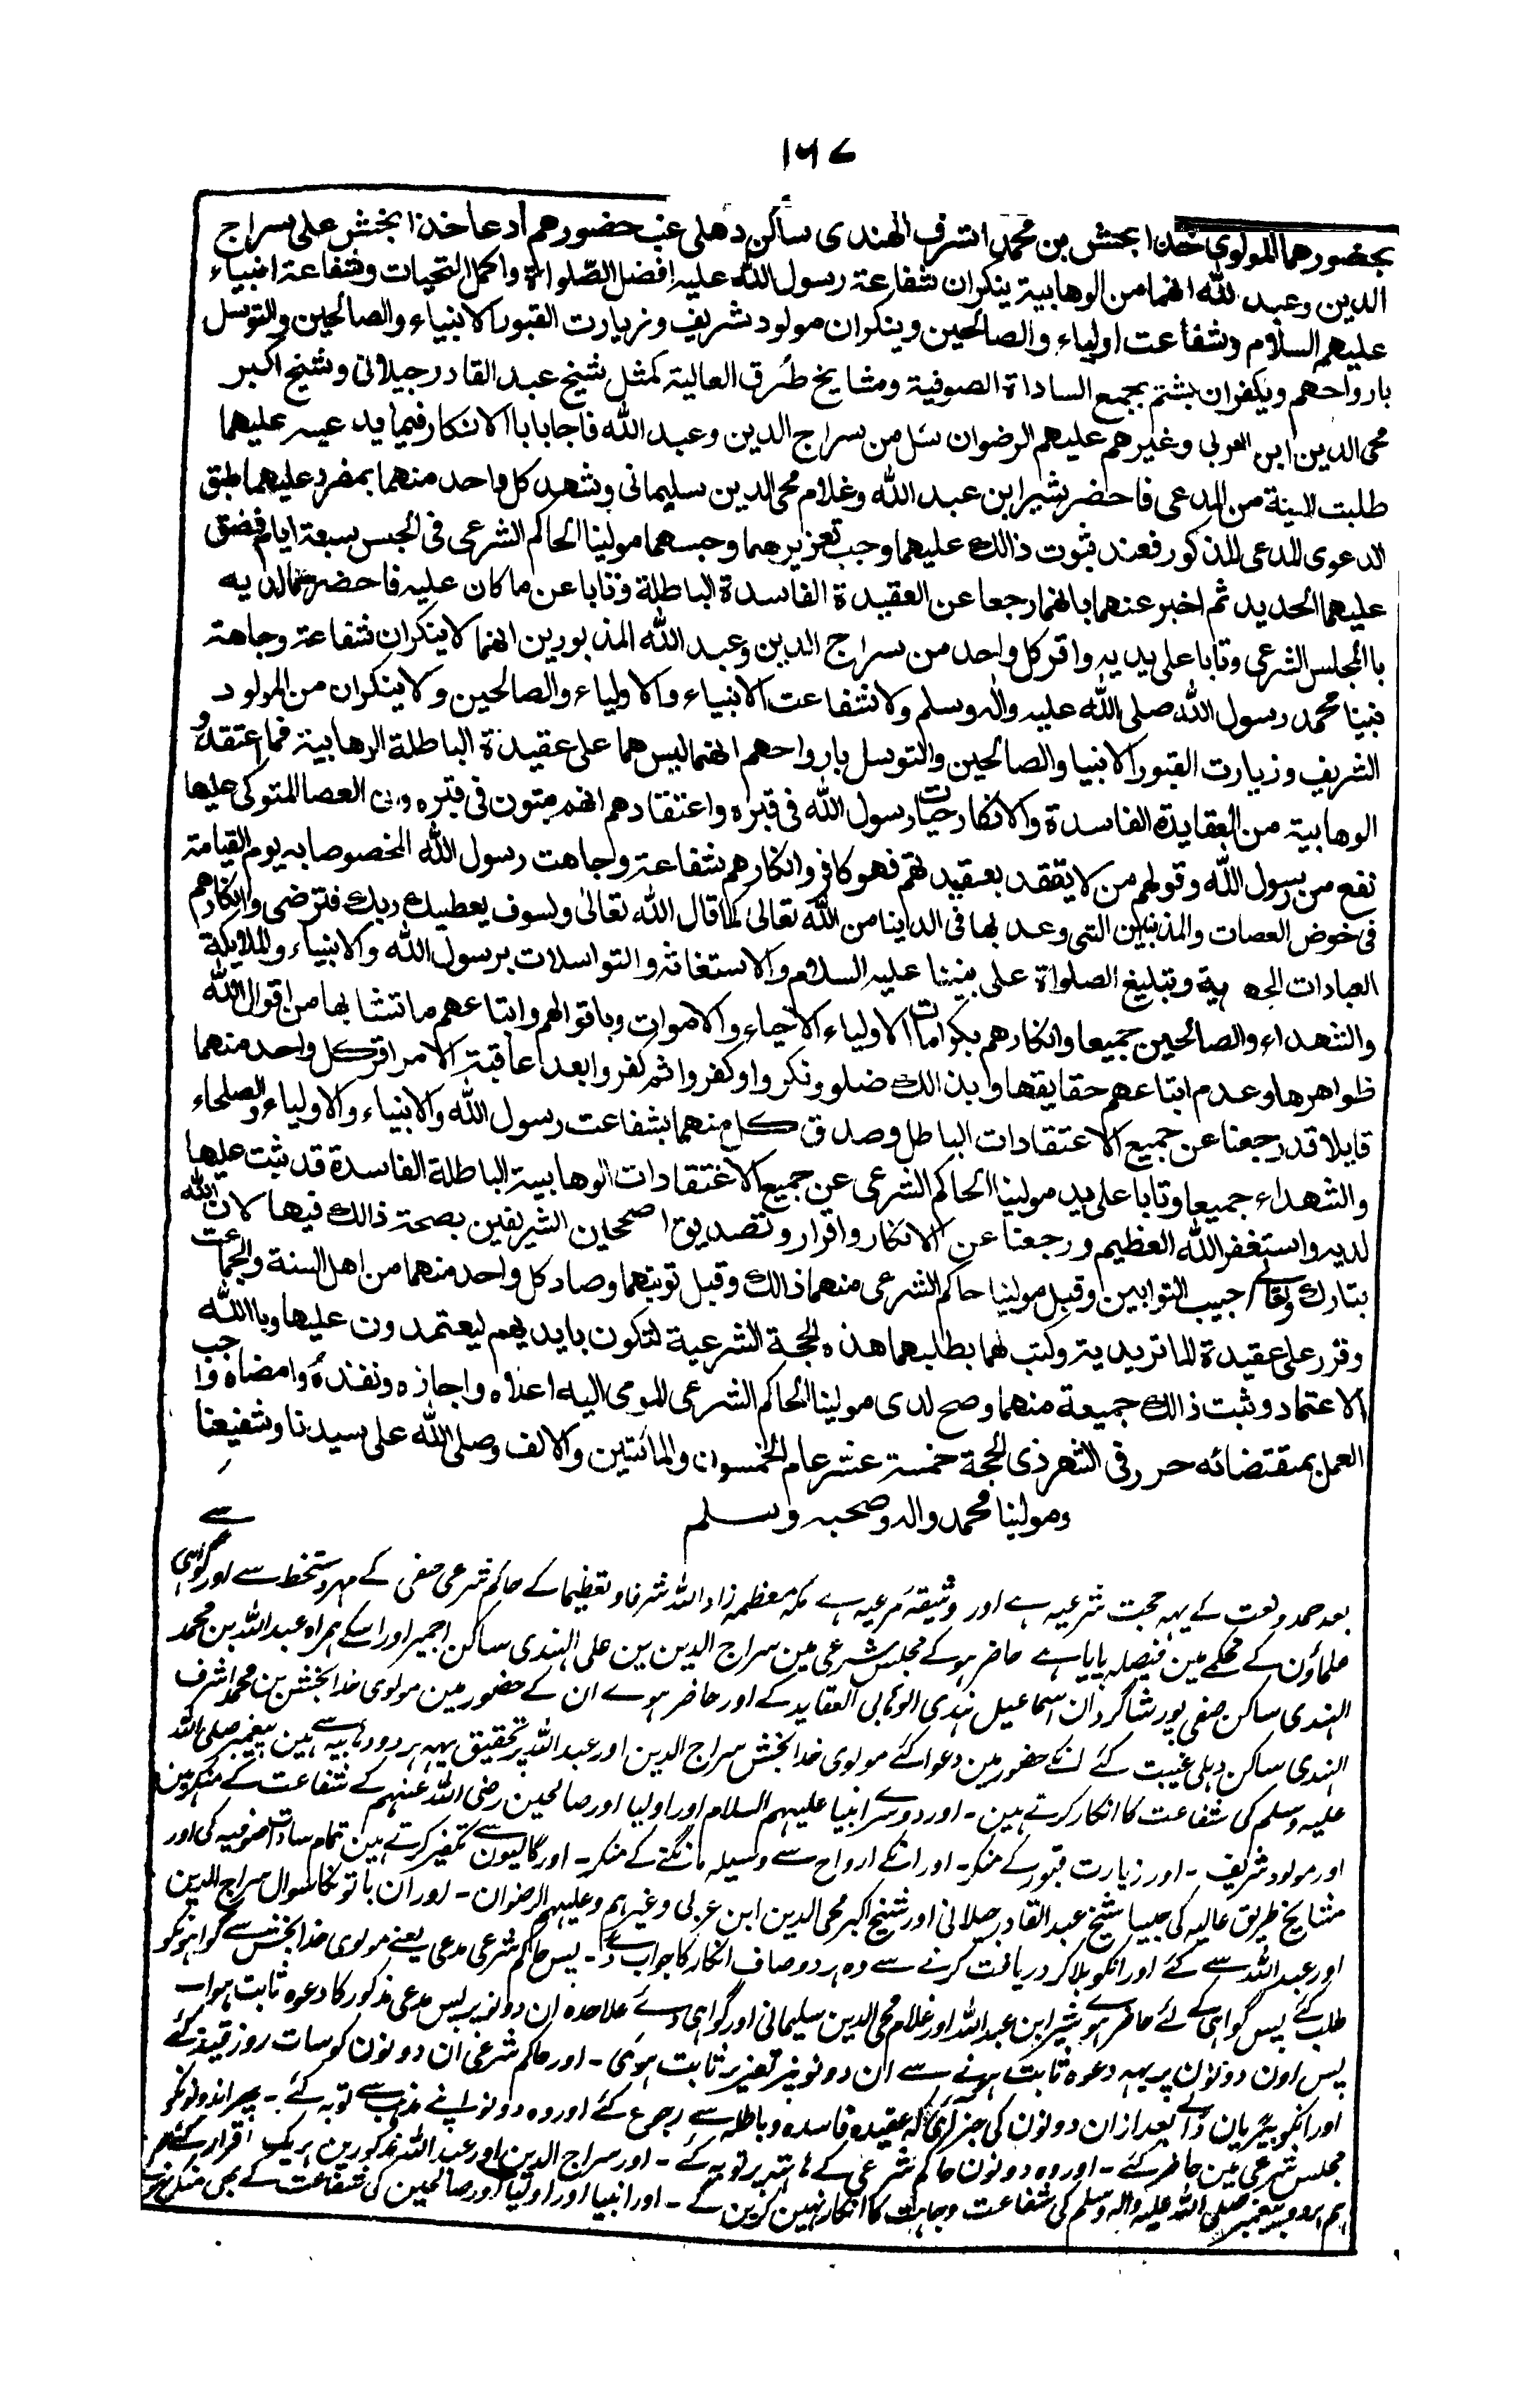 ١٦٧
بحضورهما المولوی خدا بخش بن محمد اشرف الهندی ساکن دهلی غب حضورهم ادعا خدا بخش علی سراج
الدین وعبد الله انهما من الوهابیة ینکران شفاعة رسول الله علیه افضل الصلواة واکمل التحیات وشفاعة انبیاء
علیهم السلام وشفاعت اولیاء والصالحین وینکران مولود شریف وزیارت القبور الانبیاء والصالحین والتوسل
بارواحهم ویکفران بشتم بجمیع الساداة الصوفیة ومشایخ طرق العالیة کمثل شیخ عبد القادر جیلانی وشیخ اکبر
محی الدین ابن العربی وغیرهم علیهم الرضوان سئل من سراج الدین وعبد الله فاجابا باالانکار فیما یدعیه علیهما
طلبت البینة من المدعی فاحضر بشیر ابن عبد الله وغلام محی الدین سلیمانی وشهد کل واحد منهما بمفرد علیهما طبق
الدعوی المدعی المذکور فعند ثبوت ذالک علیهما وجب تعزیرهما وحبسهما مولینا الحاکم الشرعی فی الحبس سبعة ایام فضیق
علیهما الحدید ثم اخبر عنهما بانهما رجعا عن العقیدة الفاسدة الباطلة وتابا عن ما کان علیه فاحضرتهما لدیه
باالمجلس الشرعی وتابا علی یدیه واقر کل واحد من سراج الدین وعبد الله المذبورین انهما لا ینکران شفاعة وجاهة
نبینا محمد رسول الله صلی الله علیه واله وسلم ولا شفاعت الانبیاء والاولیاء والصالحین ولا ینکران من المولود
الشریف وزیارت القبور الانبیا والصالحین والتوسل بارواحهم انهما لیس هما علی عقیدة الباطلة الوهابیة فما اعتقدوا
الوهابیة من العقایدة الفاسدة والانکار حیات رسول الله فی قبره واعتقادهم انهم میتون فی قبره وان العصا المتوکی علیها
نفع من رسول الله وقولهم من لا یقفقد بعقیدتهم فهو کافر وانکارهم شفاعة وجاهت رسول الله المخصوصا به یوم القیامة
فی خوض العصات والمذنبین التی وعد بها فی الداینا من الله تعالی کما قال الله تعالی ولسوف یعطیک ربک فترضی وانکارهم
العبادات الجهریة وتبلیغ الصلواة علی نبینا علیه السلام والاستغاثه والتواسلات برسول الله والانبیاء والملایکة
والشهداء والصالحین جمیعا وانکارهم بکرامات الاولیاء الاحیاء والاموات وباقوالهم واتباعهم ما تشابها من اقوال الله
ظواهرها وعدم اتباعهم حقایقها وبذالک ضلو ونکروا وکفروا ثم کفروا بعدا عاقبة الامر اقر کل واحد منهما
قایلا قد رجعنا عن جمیع الاعتقادات الباطل وصدق کل منهما بشفاعت رسول الله والانبیاء والاولیاء والصلحاء
والشهداء جمیعا وتابا علی ید مولینا الحاکم الشرعی عن جمیع الاعتقادات الوهابیة الباطلة الفاسدة قد ثبت علیها
لدیه واستغفر الله العظیم ورجعنا عن الانکار واقرار وتصدیق اصحیحین الشریفین بصحة ذالک فیها لان الله
تبارک وتعالی حبیب التوابین وقبل مولینا حاکم الشرعی منهما ذالک وقبل توبتهما وصاد کل واحد منهما من اهل السنة والجماعت
وقرر علی عقیدة الماتریدیة وکتب لهما بطلبهما هذه الحجة الشرعیة لتکون بایدیهم لیعتمدون علیها وباالله
الاعتماد وثبت ذالک جمیعة منهما وصح لدی مولینا الحاکم الشرعی المومی الیه اعلاه واجازه ونفذه وامضاه واجب
العمل بمقتضائه حرر فی الشهر ذی الحجة خمسة عشر عام الخمسون والمائتین والالف وصلی الله علی سیدنا وشفیعنا
ومولینا محمد واله وصحبه وسلم
بعد حمد و نعت کے یہہ حجت شرعیہ ہے اور وثیقہ مرعیہ ہے مکہ معظمہ زاد اللہ شرفا و تعظیما کے حاکم شرعی حنفی کے مہر و دستخط سے اور گواہی
علماؤن کے محکمے مین فیصلہ پایا ہے حاضر ہو کے مجلس شرعی مین سراج الدین بن علی الہندی ساکن اجمیر اور اسکے ہمراہ عبد اللہ بن محمد
الہندی ساکن صفی پور شاگردان اسماعیل ہندی الوہابی العقاید کے اور حاضر ہوے ان کے حضور مین مولوی خدا بخش بن محمد اشرف
الہندی ساکن دہلی غیبت کئے انکے حضور مین دعوا کئے مولوی خدا بخش سراج الدین اور عبد اللہ پر تحقیق یہہ ہر دو وہابیہ سے ہین پیغمبر صلی اللہ
علیہ وسلم کی شفاعت کا انکار کرتے ہین ۔ اور دوسرے انبیا علیہم السلام اور اولیا اور صالحین رضی اللہ عنہم کے شفاعت کے منکر ہین
اور مولود شریف ۔ اور زیارت قبور کے منکر ۔ اور انکے ارواح سے وسیلہ مانگنے کے منکر ۔ اور گالیون سے تکفیر کرتے ہین تمام سادات صوفیہ کی اور
مشایخ طریق عالیہ کی جیسا شیخ عبد القادر جیلانی اور شیخ اکبر محی الدین ابن عربی وغیرہم وعلیہم الرضوان ۔ اور ان باتونکا سوال سراج الدین
اور عبد اللہ سے کئے اور انکو بلا کر دریافت کرنے سے وہ ہر دو صاف انکار کا جواب دئے ۔ پس حاکم شرعی مدعی یعنے مولوی خدا بخش سے گواہونکو
طلب کئے پس گواہی کے لئے حاضر ہوے بشیر ابن عبد اللہ اور غلام محی الدین سلیمانی اور گواہی دئے علاحدہ ان دونو پر پس مدعی مذکور کا دعوہ ثابت ہوا ۔
پس اون دونون پر یہہ دعوہ ثابت ہونے سے ان دونو پر تعزیر ثابت ہوئی ۔ اور حاکم شرعی ان دونون کو سات روز قید کئے
اور انکو بیڑیان ڈالے بعد از ان دونون کی خبر آئی کہ عقیدہ فاسدہ و باطلہ سے رجوع کئے اور وہ دونو اپنے مذہب سے توبہ کئے ۔ پھر اندونونکو
مجلس شرعی مین حاضر کئے ۔ اور وہ دونون حاکم شرعی کے ہاتھہ پر توبہ کئے ۔ اور سراج الدین اور عبد اللہ مذکورین ہر یک اقرار کئے
ہم ہر دو پیغمبر صلی اللہ علیہ والہ وسلم کی شفاعت وجاہت کا انکار نہین کرین گے ۔ اور انبیا اور اولیا اور صالحین کی شفاعت کے بھی منکر